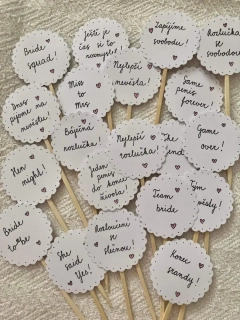 Bride
squad!
Ještě je
čas si to
rozmyslet!
Zapijíme
svobodu!
Rozlučka
se
svobodou
Dnes
pijeme na
nevěstu!
Miss
to
Mrs
Nejlepší
nevěsta!
Same
penis
forever!
Hen
night!
Báječná
rozlučka!
Nejlepší
rozlučka!
The
Game
over!
Jeden
penis
do konce
života!
Team
bride
Tým
Bride
to be
She
said
Yes!
Rozloučení
se
slečnou!
Konec
srandy!